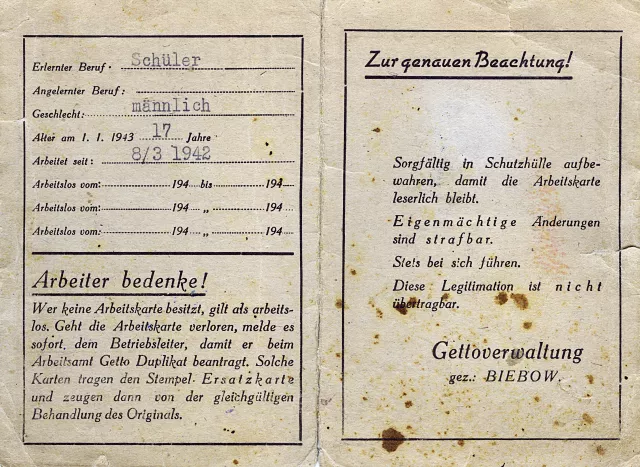 Erlernter Beruf: Schüler
Angelernter Beruf:
Geschlecht: männlich
Alter am 1. 1. 1943 17 Jahre
Arbeitet seit: 8/3 1942
Arbeitslos vom: 194 bis 194
Arbeitslos vom: 194 „ 194
Arbeitslos vom: 194 „ 194
Arbeiter bedenke!
Wer keine Arbeitskarte besitzt, gilt als arbeits-
los. Geht die Arbeitskarte verloren, melde es
sofort dem Betriebsleiter, damit er beim
Arbeitsamt Getto Duplikat beantragt. Solche
Karten tragen den Stempel Ersatzkarte
und zeugen dann von der gleichgültigen
Behandlung des Originals.
Zur genauen Beachtung!
Sorgfältig in Schutzhülle aufbe-
wahren, damit die Arbeitskarte
leserlich bleibt.
Eigenmächtige Änderungen
sind strafbar.
Stets bei sich führen.
Diese Legitimation ist nicht
übertragbar.
Gettoverwaltung
gez.: BIEBOW.